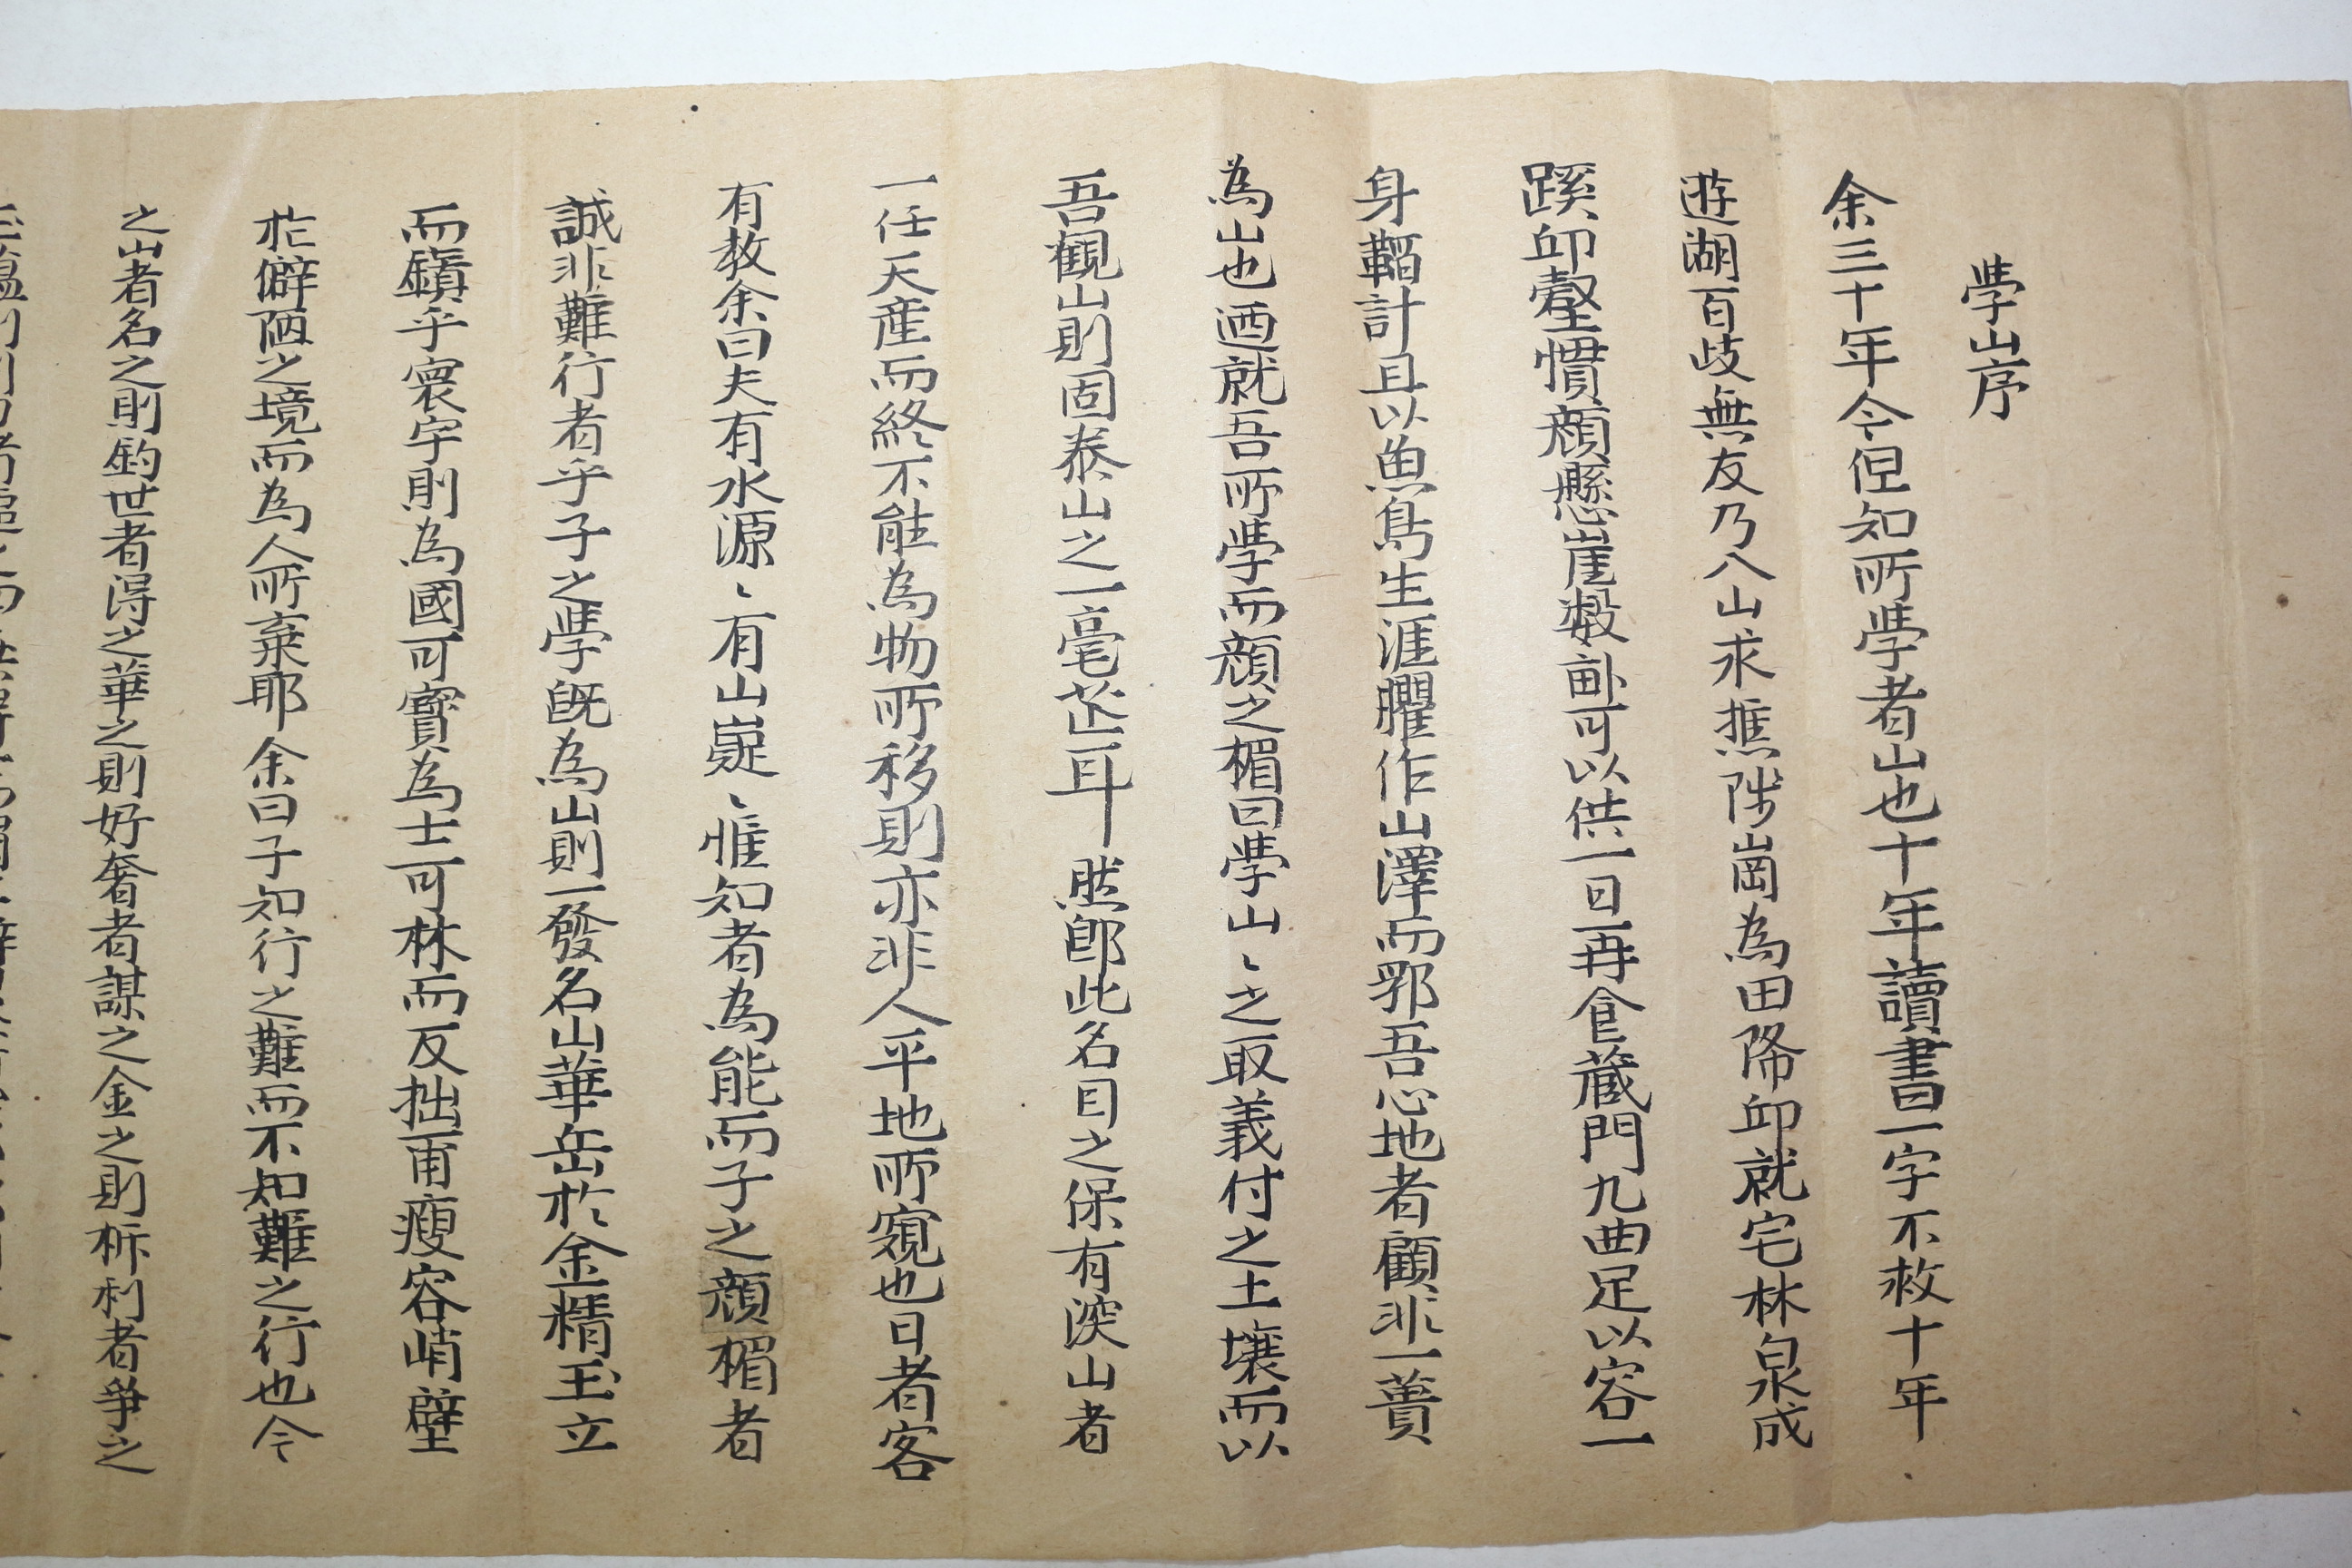 學山序
余三十年今但知所學者山也十年讀書一字不救十年
遊湖百歧無友乃入山求樵陟崗為田降邱就宅林泉成
蹊邱壑慣顏懸崖數畝可以供一日再食藏門九曲足以容一
身韜計且以魚鳥生涯臞作山澤而郛吾心地者顧非一蕢
為山也迺就吾所學而顏之楣曰學山〻之取義付之土壤而以
吾觀山則固泰山之一毫芒耳 然卽此名目之保有深山者
一任天産而終不能為物所移則亦非人平地所窺也日者客
有教余曰夫有水源〻有山嶷〻惟知者為能而子之顏楣者
誠非難行者乎子之學旣為山則一發名山華岳於金精玉立
而鎭乎寰宇則為國可寶為士可林而反拙甫瘦容峭壁
於僻陋之境而為人所棄耶余曰子知行之難而不知難之行也今
之山者名之則釣世者得之華之則好奢者謀之金之則析利者爭之